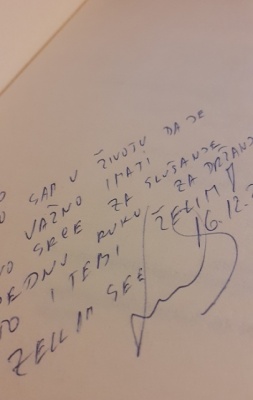 SAM U ŽIVOTU DA JE
VAŽNO IMATI
SRCE ZA SLUŠANJE
JEDNU RUKU ZA DRŽANJ
TO I TEBI ŽELIM!
ŽELIM SEE 16.12.